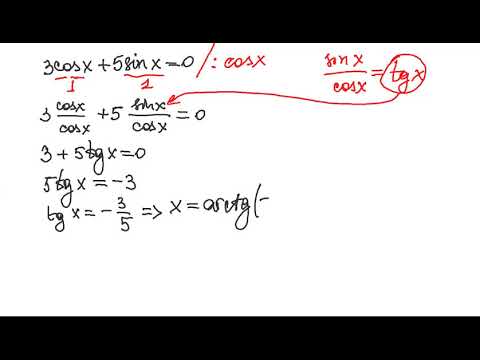 3cosx + 5sinx = 0 /: cosx
1 1
sinx/cosx = tgx
3 cosx/cosx + 5 sinx/cosx = 0
3 + 5tgx = 0
5tgx = -3
tgx = -3/5 => x = arctg(-